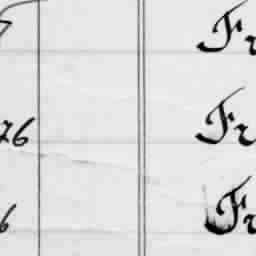 7 Fr
76 Fr
6 Fr